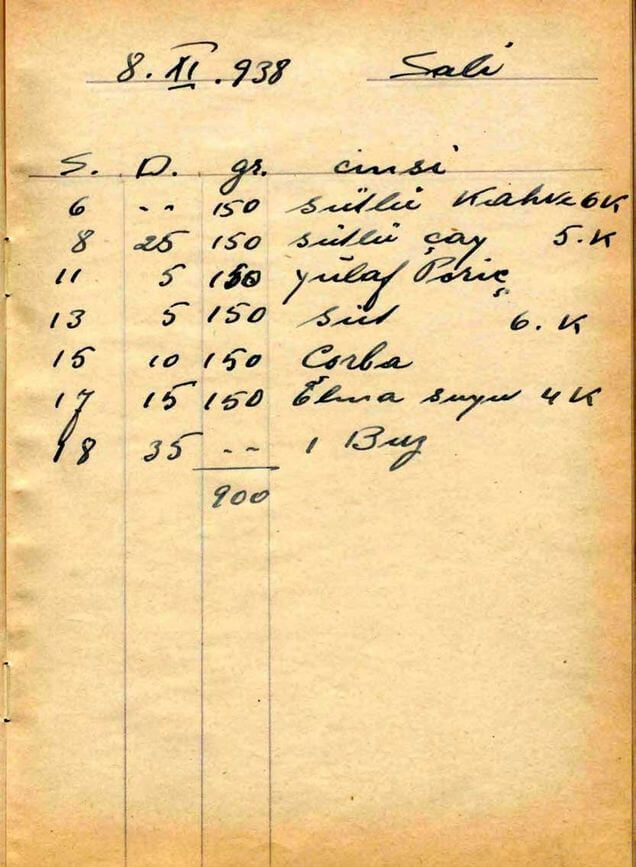 8. XI. 938 Salı
S. D. gr. cinsi
6 -- 150 sütlü Kahve 6K
8 25 150 sütlü çay 5.K
11 5 150 yülaf Poriç
13 5 150 süt 6.K
15 10 150 Çorba
17 15 150 Elma suyu 4K
18 35 -- 1 Buz
900